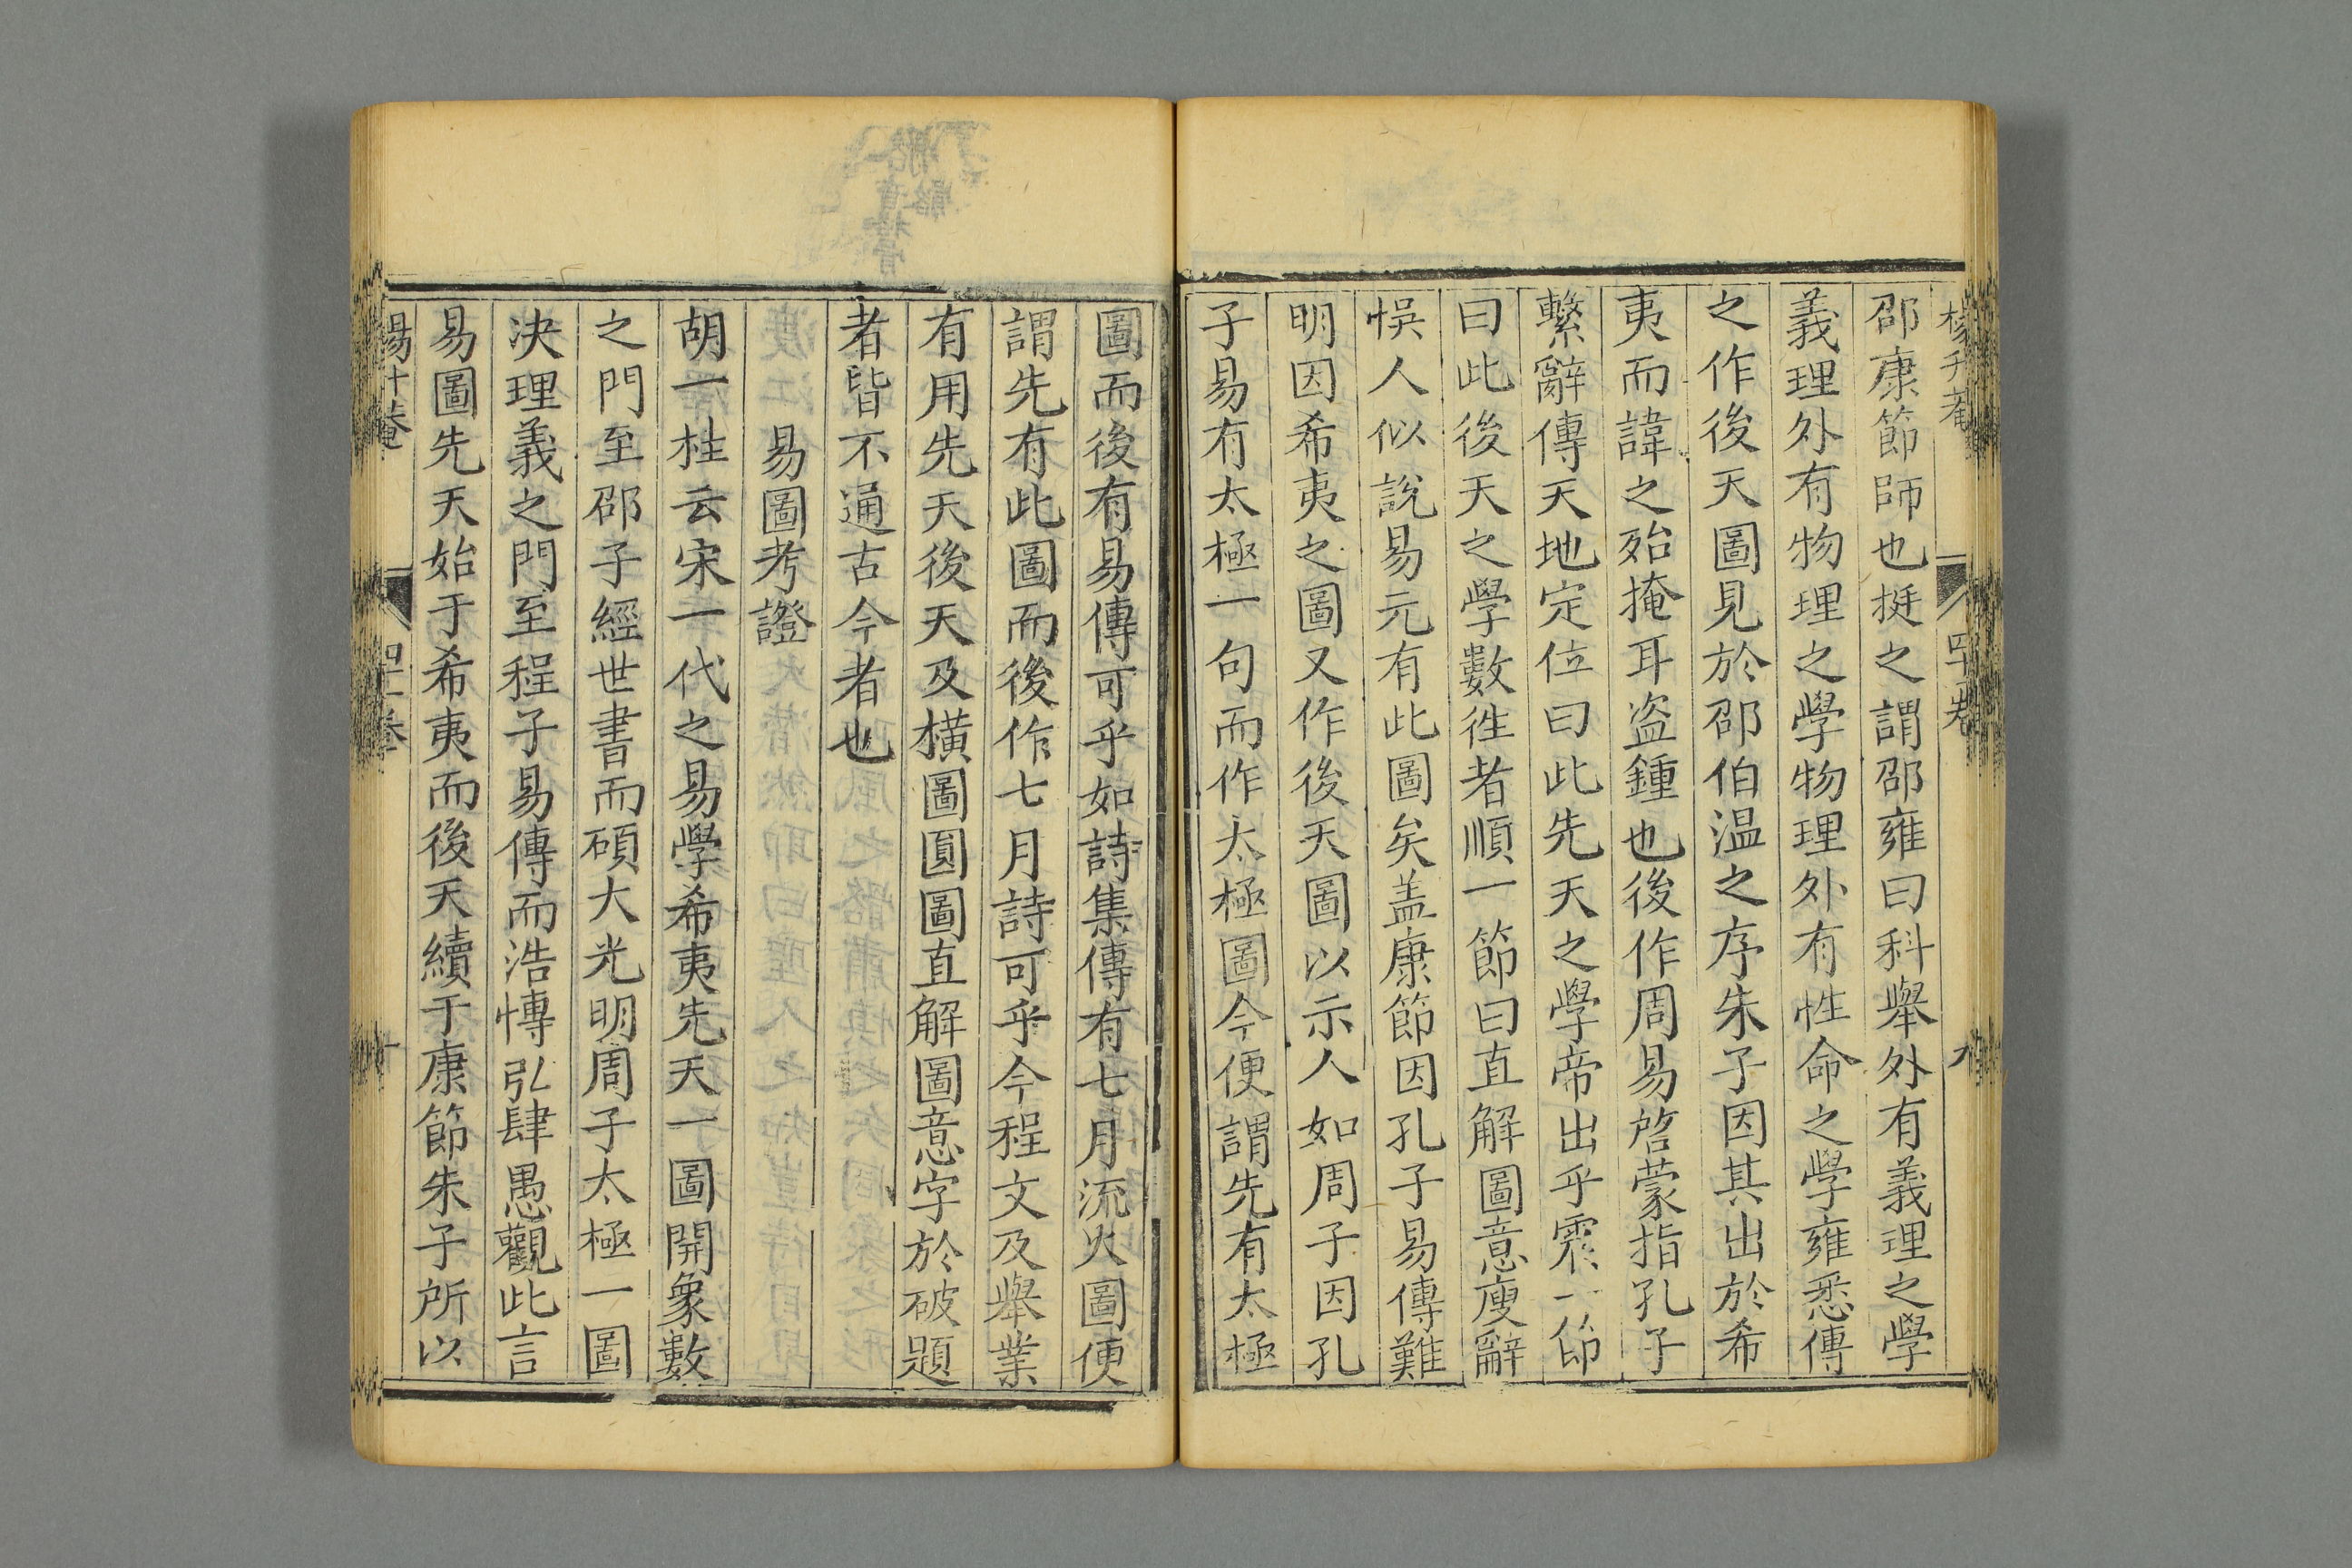 邵康節師也挺之謂邵雍曰科舉外有義理之學
義理外有物理之學物理外有性命之學雍悉傳
之作後天圖見於邵伯温之序朱子因其出於希
夷而諱之殆掩耳盗鍾也後作周易啓蒙指孔子
繫辭傳天地定位曰此先天之學帝出乎震一節
曰此後天之學數徃者順一節曰直解圖意廋辭
悞人似說易元有此圖矣盖康節因孔子易傳難
明因希夷之圖又作後天圖以示人如周子因孔
子易有太極一句而作太極圖今便謂先有太極
圖而後有易傳可乎如詩集傳有七月流火圖便
謂先有此圖而後作七月詩可乎今程文及舉業
有用先天後天及橫圖圓圖直解圖意字於破題
者皆不通古今者也
易圖考證
胡一桂云宋一代之易學希夷先天一圖開象數
之門至邵子經世書而碩大光明周子太極一圖
决理義之門至程子易傳而浩慱弘肆愚觀此言
易圖先天始于希夷而後天續于康節朱子所以